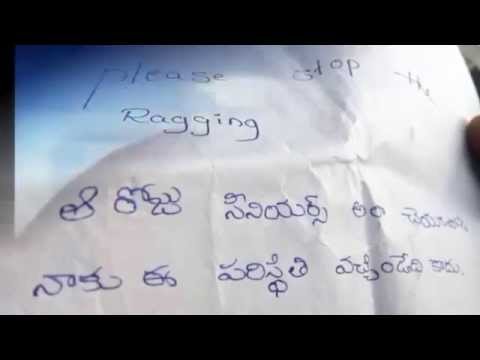 please stop the
Ragging
ఆ రోజు సీనియర్స్ అలా
నాకు ఈ పరిస్థితి వచ్చేండేది కాదు.